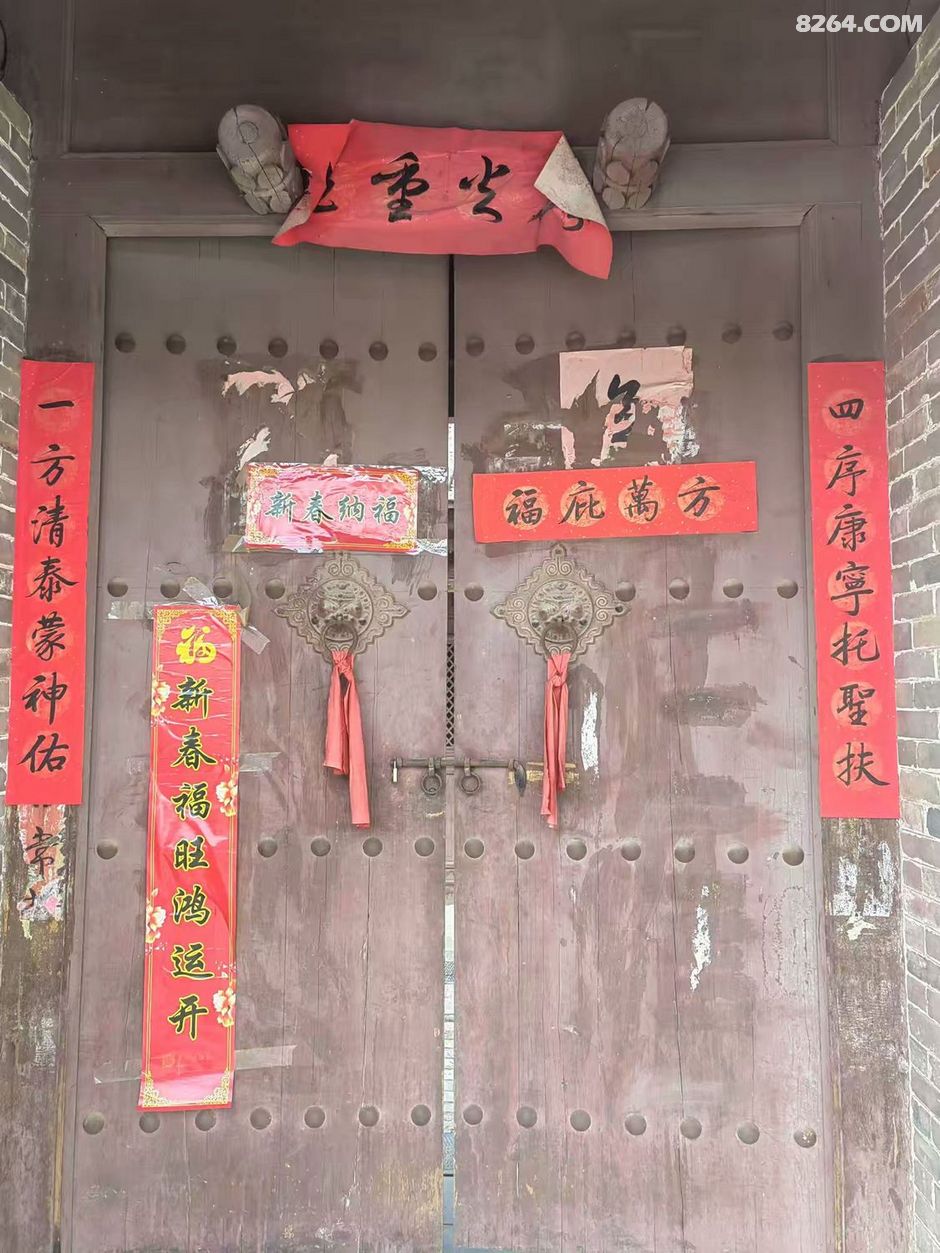 8264.COM
重光
四序康寧托聖扶
一方清泰蒙神佑
新春纳福
福庇萬方
福
新春福旺鸿运开
常